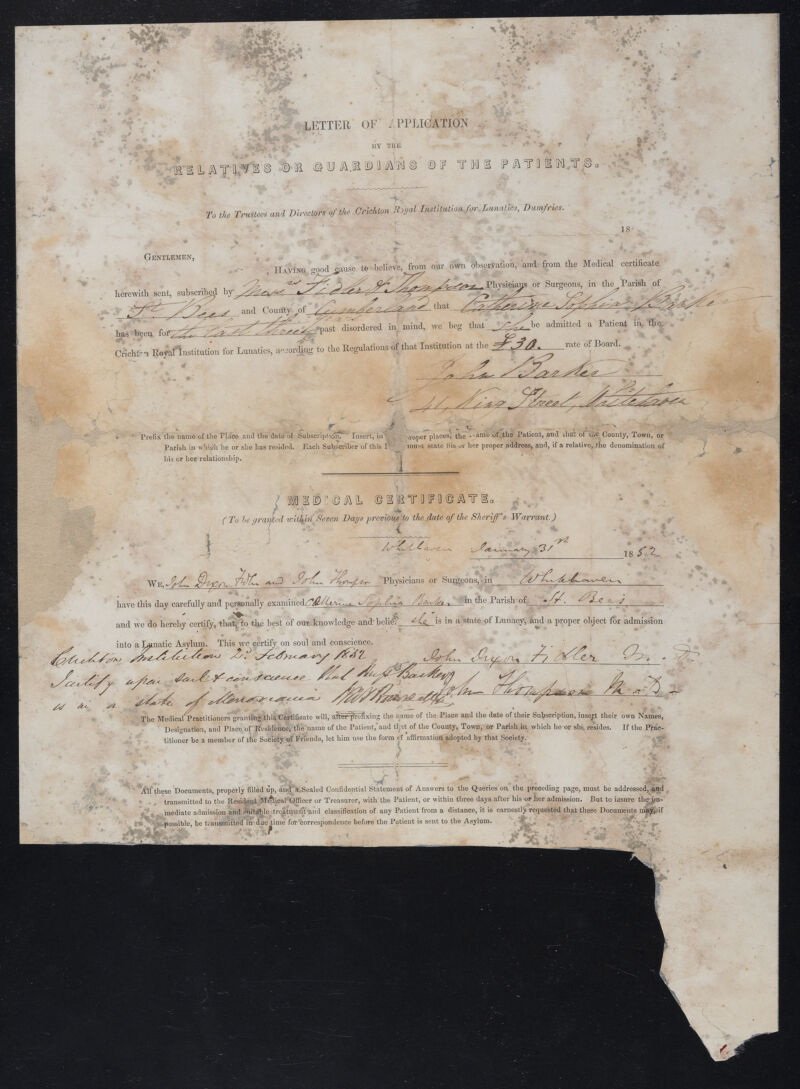 LETTER OF APPLICATION
BY THE
RELATIVES OR GUARDIANS OF THE PATIENTS.
To the Trustees and Directors of the Crichton Royal Institution for Lunatics, Dumfries.
18
GENTLEMEN,
HAVING good cause to believe, from our own observation, and from the Medical certificate
herewith sent, subscribed by Messrs Fidler & Thompson Physicians or Surgeons, in the Parish of
St. Bees and County of Cumberland that Catherine Sophia Barker
has been for the last three past disordered in mind, we beg that She be admitted a Patient in the
Crichton Royal Institution for Lunatics, according to the Regulations of that Institution at the £30. rate of Board.
John Barker
41, King Street, Whitehaven
Prefix the name of the Place and the date of Subscription. Insert, in proper places, the name of the Patient, and that of the County, Town, or
Parish in which he or she has resided. Each Subscriber of this must state his or her proper address, and, if a relative, the denomination of
his or her relationship.
MEDICAL CERTIFICATE.
(To be granted within Seven Days previous to the date of the Sheriff's Warrant.)
Whitehaven January 31st 1852
WE, John Dixon Fidler and John Thompson Physicians or Surgeons, in Whitehaven
have this day carefully and personally examined Catherine Sophia Barker in the Parish of St. Bees
and we do hereby certify, that, to the best of our knowledge and belief she is in a state of Lunacy, and a proper object for admission
into a Lunatic Asylum. This we certify on soul and conscience.
Crichton Institution 2d February 1852 John Dixon Fidler M.D.
I certify upon soul & conscience that Barker
is in a state of Monomania John Thompson M.D.
The Medical Practitioners granting this Certificate will, after prefixing the name of the Place and the date of their Subscription, insert their own Names,
Designation, and Place of Residence, the name of the Patient, and that of the County, Town, or Parish in which he or she resides. If the Prac-
titioner be a member of the Society of Friends, let him use the form of affirmation adopted by that Society.
All these Documents, properly filled up, and a Sealed Confidential Statement of Answers to the Queries on the preceding page, must be addressed, and
transmitted to the Resident Medical Officer or Treasurer, with the Patient, or within three days after his or her admission. But to insure the im-
mediate admission and suitable treatment and classification of any Patient from a distance, it is earnestly requested that these Documents may, if
possible, be transmitted in due time for correspondence before the Patient is sent to the Asylum.